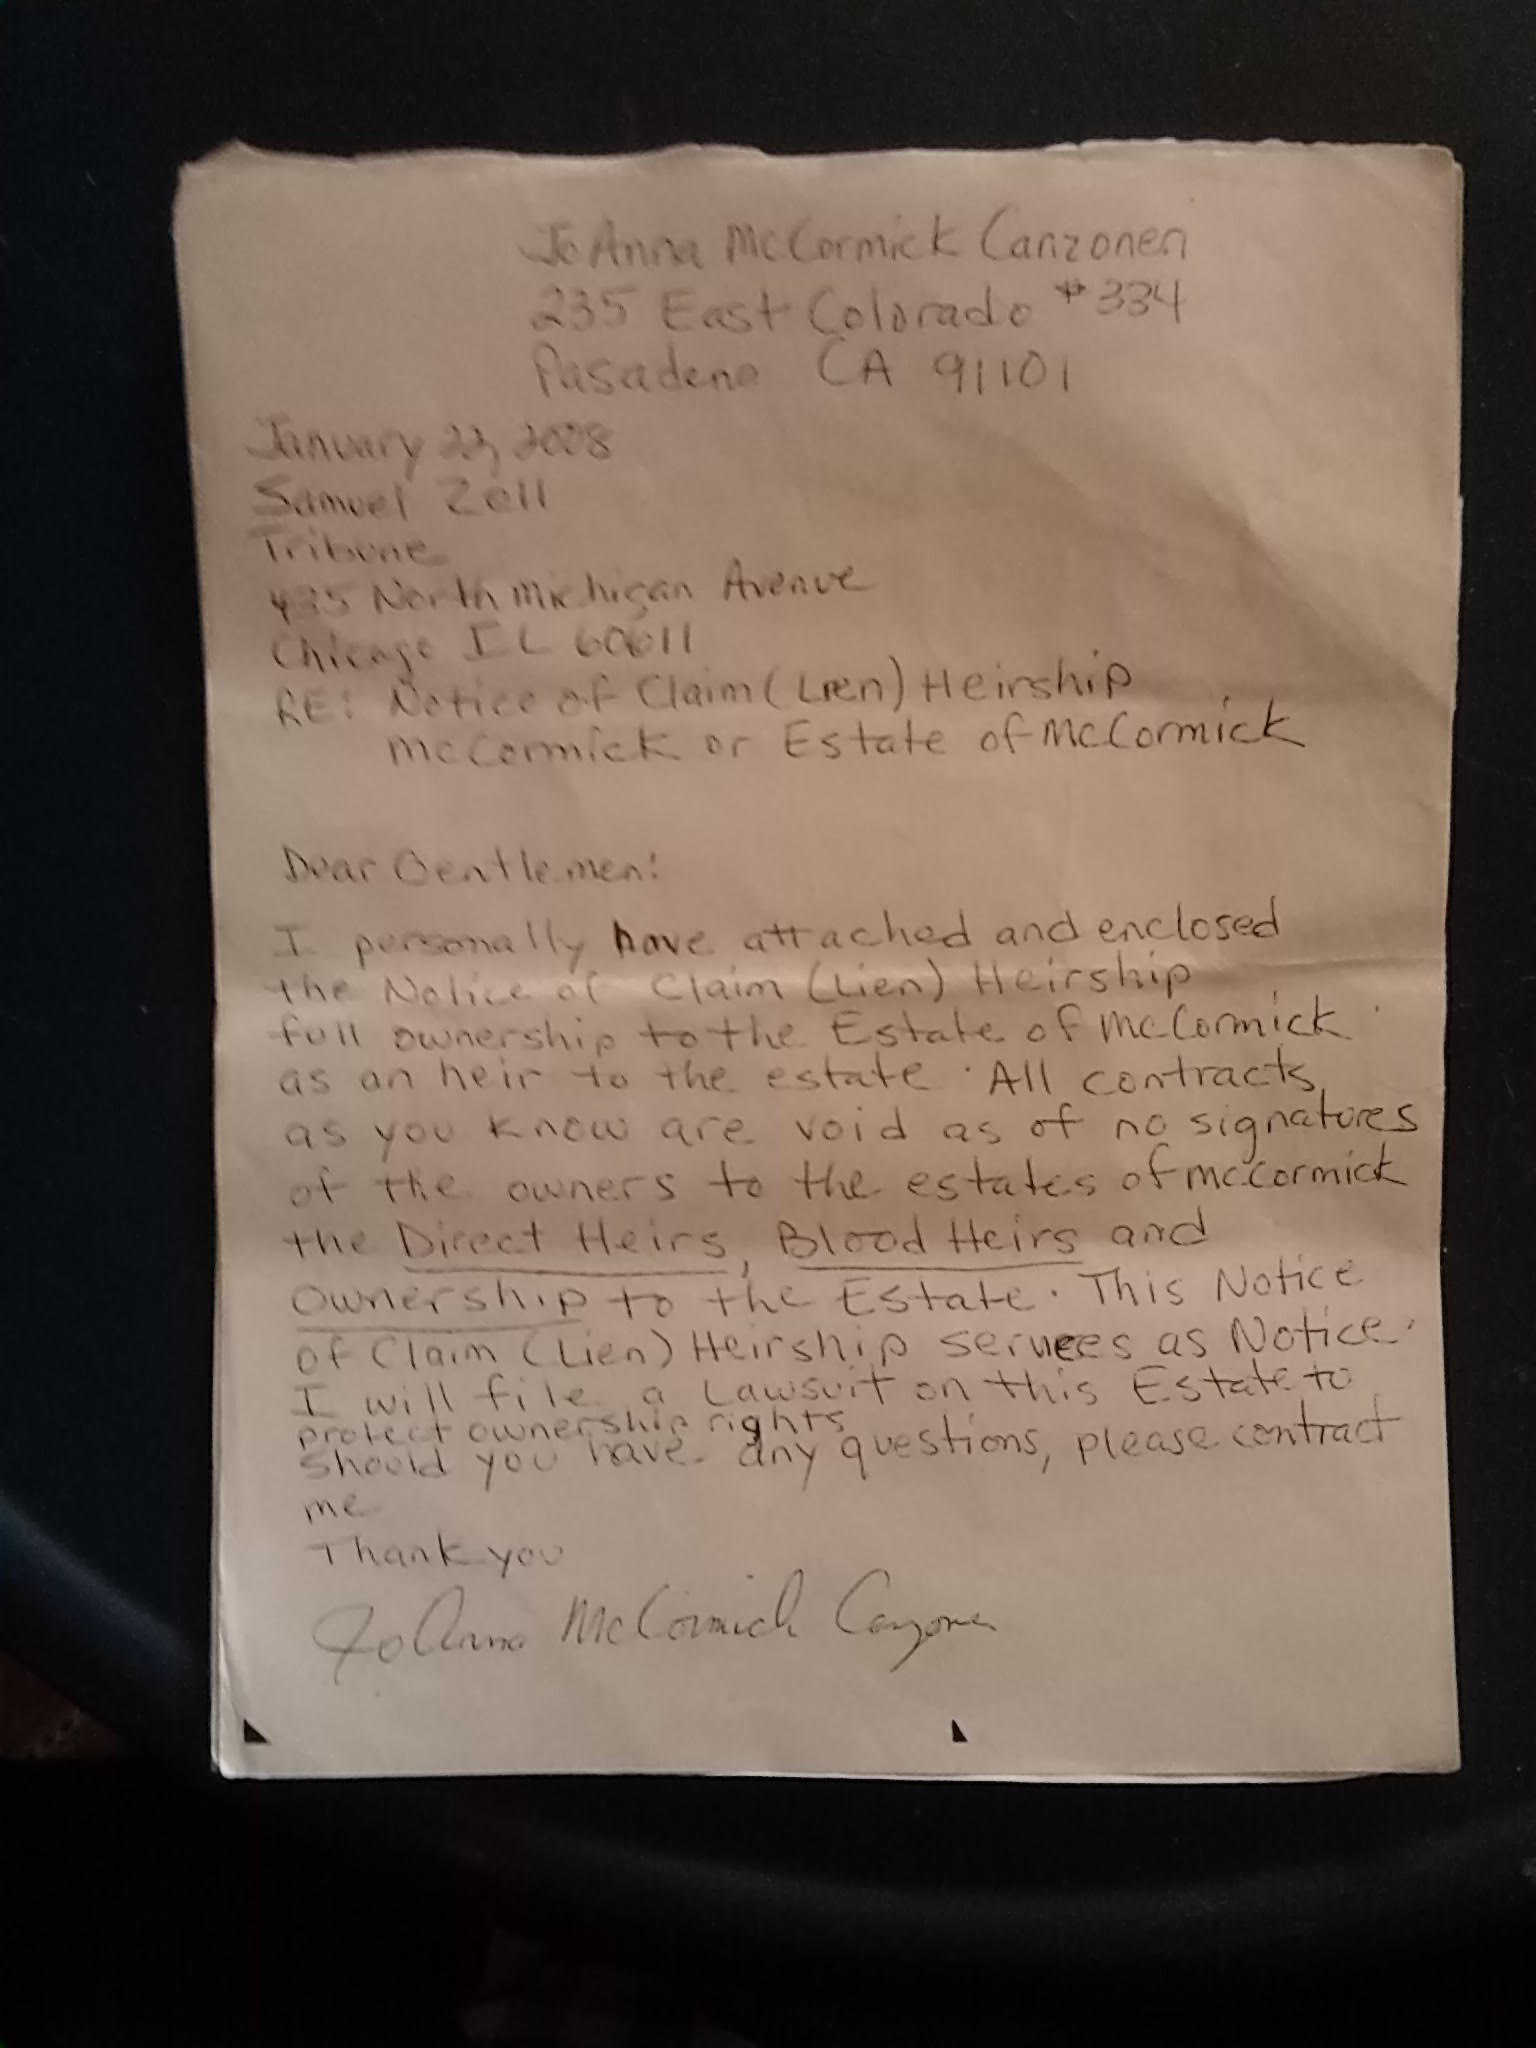 JoAnna McCormick Canzoneri
235 East Colorado #334
Pasadena CA 91101
January 22, 2008
Samuel Zell
Tribune
435 North Michigan Avenue
Chicago IL 60611
RE: Notice of Claim (Lien) Heirship
McCormick or Estate of McCormick
Dear Gentlemen:
I personally have attached and enclosed
the Notice of Claim (Lien) Heirship
full ownership to the Estate of McCormick
as an heir to the estate. All contracts,
as you know are void as of no signatures
of the owners to the estates of McCormick
the Direct Heirs, Blood Heirs and
Ownership to the Estate. This Notice
of Claim (Lien) Heirship serves as Notice.
I will file a Lawsuit on this Estate to
protect ownership rights
Should you have any questions, please contract
me
Thank you
JoAnna McCormick Canzoneri